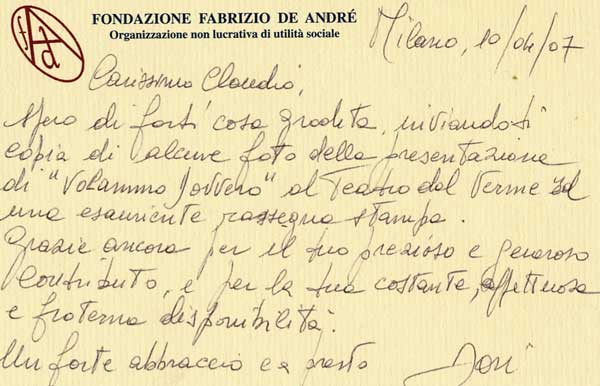 FONDAZIONE FABRIZIO DE ANDRÉ
Organizzazione non lucrativa di utilità sociale
Milano, 10/04/07
Carissimo Claudio,
spero di farti cosa gradita, inviandoti
copia di alcune foto della presentazione
di "Volammo Davvero" al Teatro dal Verme ed
una esauriente rassegna stampa.
Grazie ancora per il tuo prezioso e generoso
contributo, e per la tua costante, affettuosa
e fraterna disponibilità.
Un forte abbraccio e a presto
Dori